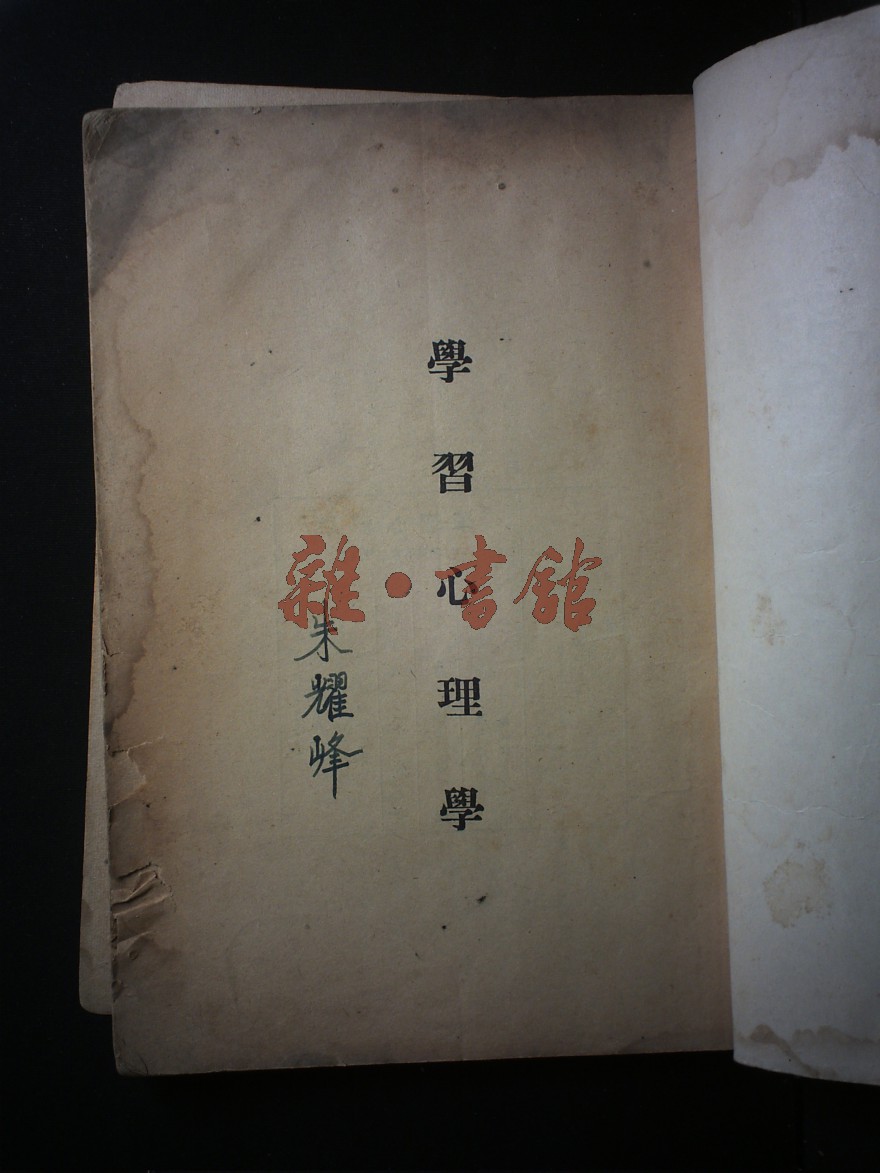 學習心理學
朱耀峰
雜·書館